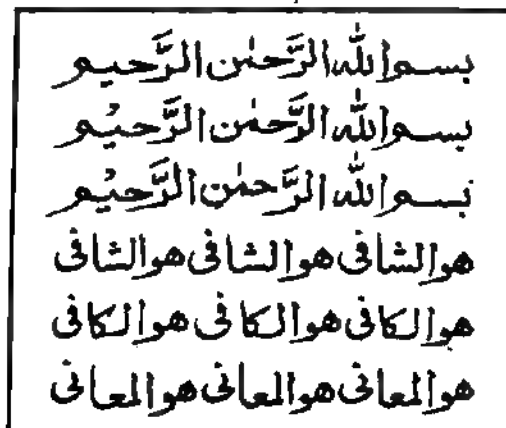 بسم الله الرحمٰن الرحيم
بسم الله الرحمٰن الرحيم
بسم الله الرحمٰن الرحيم
هوالشافى هوالشافى هوالشافى
هوالكافى هوالكافى هوالكافى
هوالمعافى هوالمعافى هوالمعافى